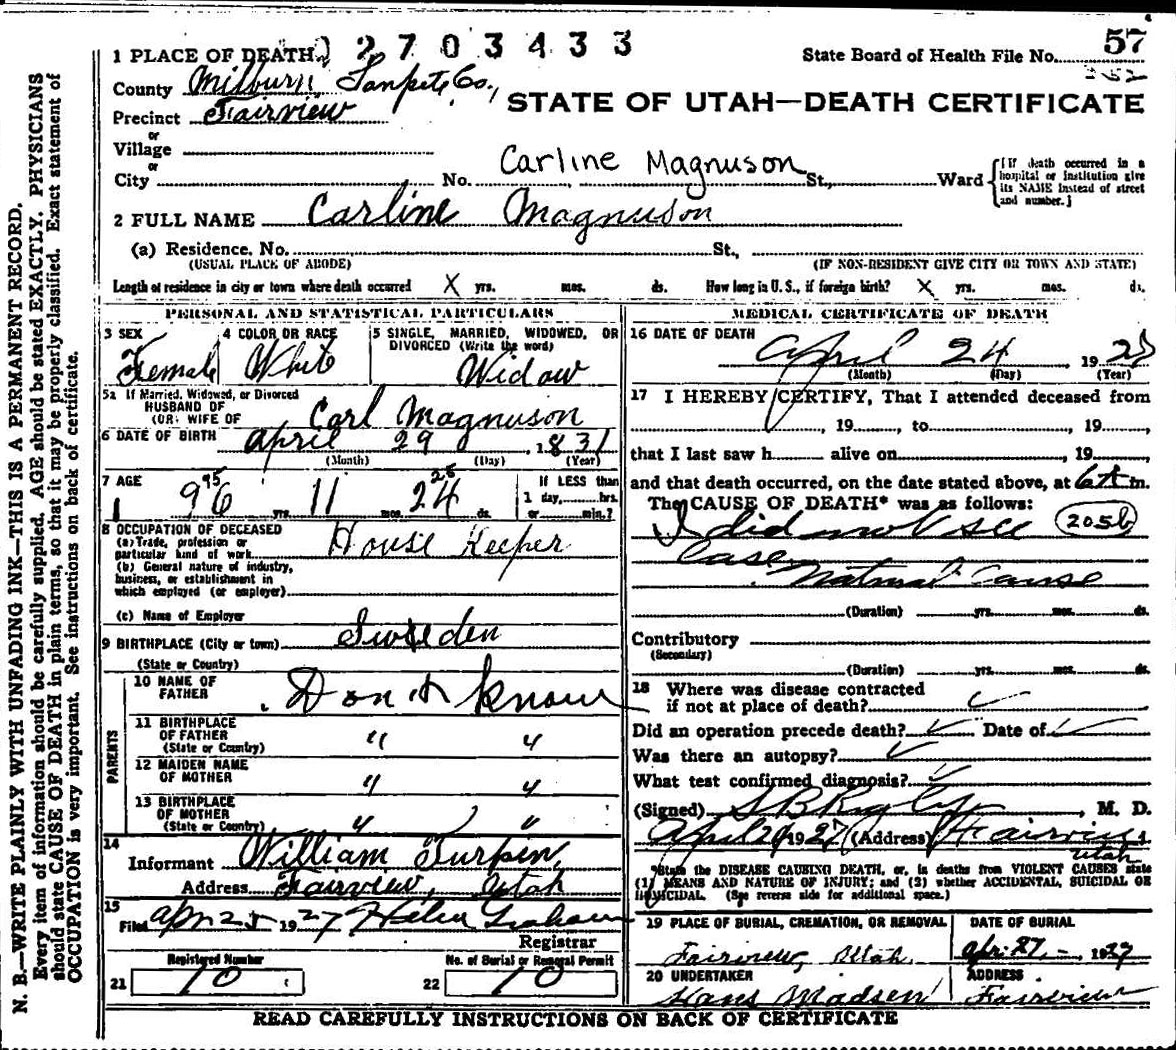 2703433
57
1 PLACE OF DEATH
State Board of Health File No.
252
County Milburn, Sanpete Co.,
Precinct Fairview
STATE OF UTAH—DEATH CERTIFICATE
or
Village
or
City No. Carline Magnuson St., Ward
{If death occurred in a hospital or institution give its NAME instead of street and number.}
2 FULL NAME Carline Magnuson
(a) Residence. No. St.,
(USUAL PLACE OF ABODE) (IF NON-RESIDENT GIVE CITY OR TOWN AND STATE)
Length of residence in city or town where death occurred X yrs. mos. ds. How long in U. S., if foreign birth? X yrs. mos. ds.
PERSONAL AND STATISTICAL PARTICULARS
3 SEX
Female
4 COLOR OR RACE
White
5 SINGLE, MARRIED, WIDOWED, OR DIVORCED (Write the word)
Widow
5a If Married, Widowed, or Divorced
HUSBAND OF
(OR) WIFE OF Carl Magnuson
6 DATE OF BIRTH April 29, 1831
(Month) (Day) (Year)
7 AGE 96 95 yrs. 11 mos. 24 25 ds.
If LESS than
1 day, hrs.
or min.?
8 OCCUPATION OF DECEASED
(a) Trade, profession or
particular kind of work House Keeper
(b) General nature of industry,
business, or establishment in
which employed (or employer)
(c) Name of Employer
9 BIRTHPLACE (City or town) Sweden
(State or Country)
PARENTS
10 NAME OF
FATHER Don't know
11 BIRTHPLACE
OF FATHER " "
(State or Country)
12 MAIDEN NAME
OF MOTHER " "
13 BIRTHPLACE
OF MOTHER " "
(State or Country)
14
Informant William Turpin,
Address Fairview, Utah
15
Filed Apr 25 1927 Helen Graham
Registrar
Registered Number
21 10
No. of Burial or Removal Permit
22 10
MEDICAL CERTIFICATE OF DEATH
16 DATE OF DEATH
April 24, 1927
(Month) (Day) (Year)
17 I HEREBY CERTIFY, That I attended deceased from
, 19 , to , 19 ,
that I last saw h alive on , 19 ,
and that death occurred, on the date stated above, at 6 A m.
The CAUSE OF DEATH* was as follows:
I did not see 205b
Case.
Natural Cause
(Duration) yrs. mos. ds.
Contributory
(Secondary)
(Duration) yrs. mos. ds.
18 Where was disease contracted
if not at place of death?
Did an operation precede death? Date of
Was there an autopsy?
What test confirmed diagnosis?
(Signed) , M. D.
1927 (Address) Fairview
Utah
*State the DISEASE CAUSING DEATH, or, in deaths from VIOLENT CAUSES state
(1) MEANS AND NATURE OF INJURY; and (2) whether ACCIDENTAL, SUICIDAL OR
HOMICIDAL. (See reverse side for additional space.)
19 PLACE OF BURIAL, CREMATION, OR REMOVAL
Fairview, Utah.
DATE OF BURIAL
Apr. 27 1927
20 UNDERTAKER
Hans Madsen
ADDRESS
Fairview
READ CAREFULLY INSTRUCTIONS ON BACK OF CERTIFICATE
N. B.—WRITE PLAINLY WITH UNFADING INK—THIS IS A PERMANENT RECORD.
Every item of information should be carefully supplied. AGE should be stated EXACTLY. PHYSICIANS
should state CAUSE OF DEATH in plain terms, so that it may be properly classified. Exact statement of
OCCUPATION is very important. See instructions on back of certificate.